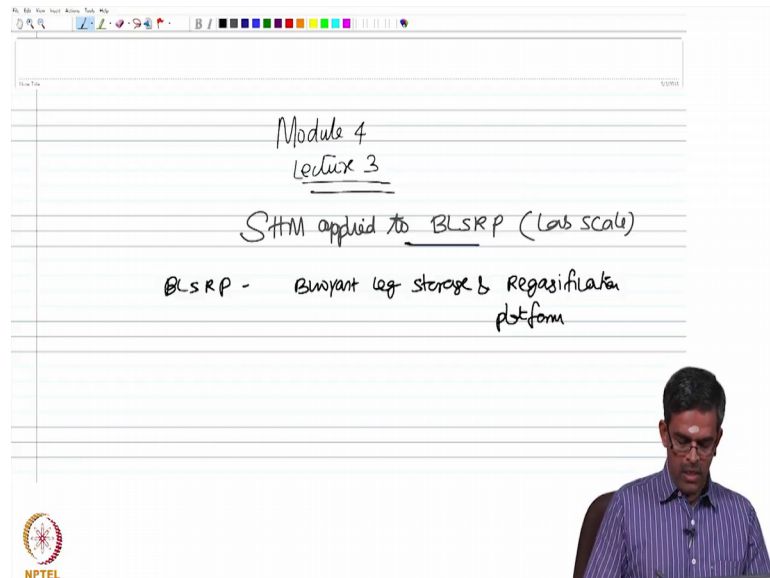 File Edit View Insert Actions Tools Help
B I
Note Title
Module 4
Lecture 3
SHM applied to BLSRP (Lab scale)
BLSRP - Buoyant Leg storage & Regasification
platform
NPTEL